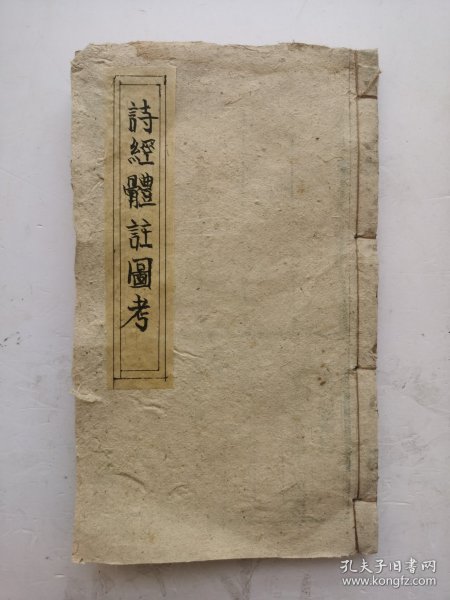 詩經體註圖考
孔夫子旧书网
www.kongfz.com